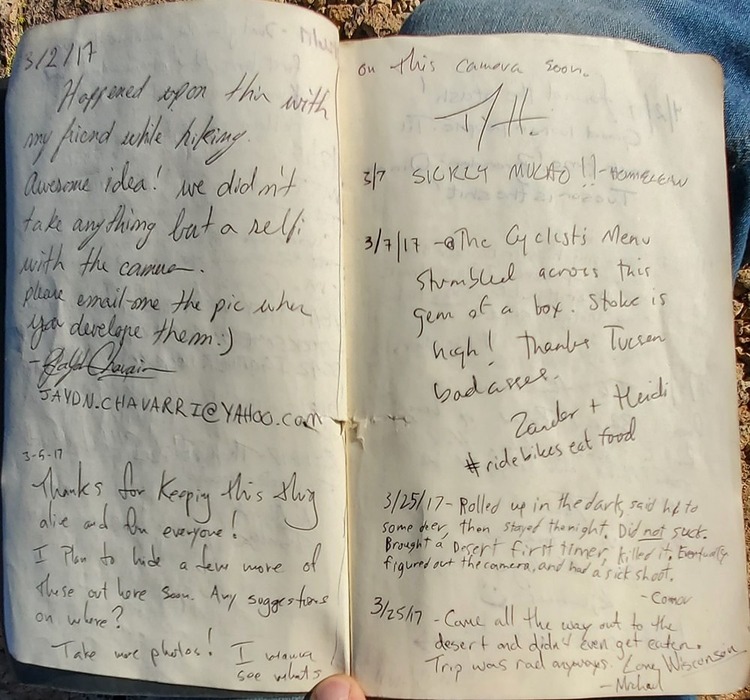 3/2/17
Happened upon this with
my friend while hiking.
Awesome idea! we didn't
take anything but a selfi
with the camera.
please email me the pic when
you develope them:)
-
JAYDN.CHAVARRI@YAHOO.com
3-5-17
Thanks for keeping this thig
alive and for everyone!
I Plan to hide a few more of
these out here soon. Any suggestions
on where?
Take more photos! I wanna
see whats
on this camera soon.
3/7 SICKLY MUCHO !!-
3/7/17 -@The Cyclist's Menu
Stumbled across this
gem of a box. Stoke is
high! Thanks Tucson
badasses.
Zander + Heidi
#ridebikeseatfood
3/25/17- Rolled up in the dark, said hi to
some deer, then stayed the night. Did not suck.
Brought a Desert first timer, killed it, Eventually
figured out the camera, and had a sick shoot.
-Conor
3/25/17 - Came all the way out to the
desert and didn't even get eaten.
Trip was rad anyways. Love, Wisconsin
-Michael